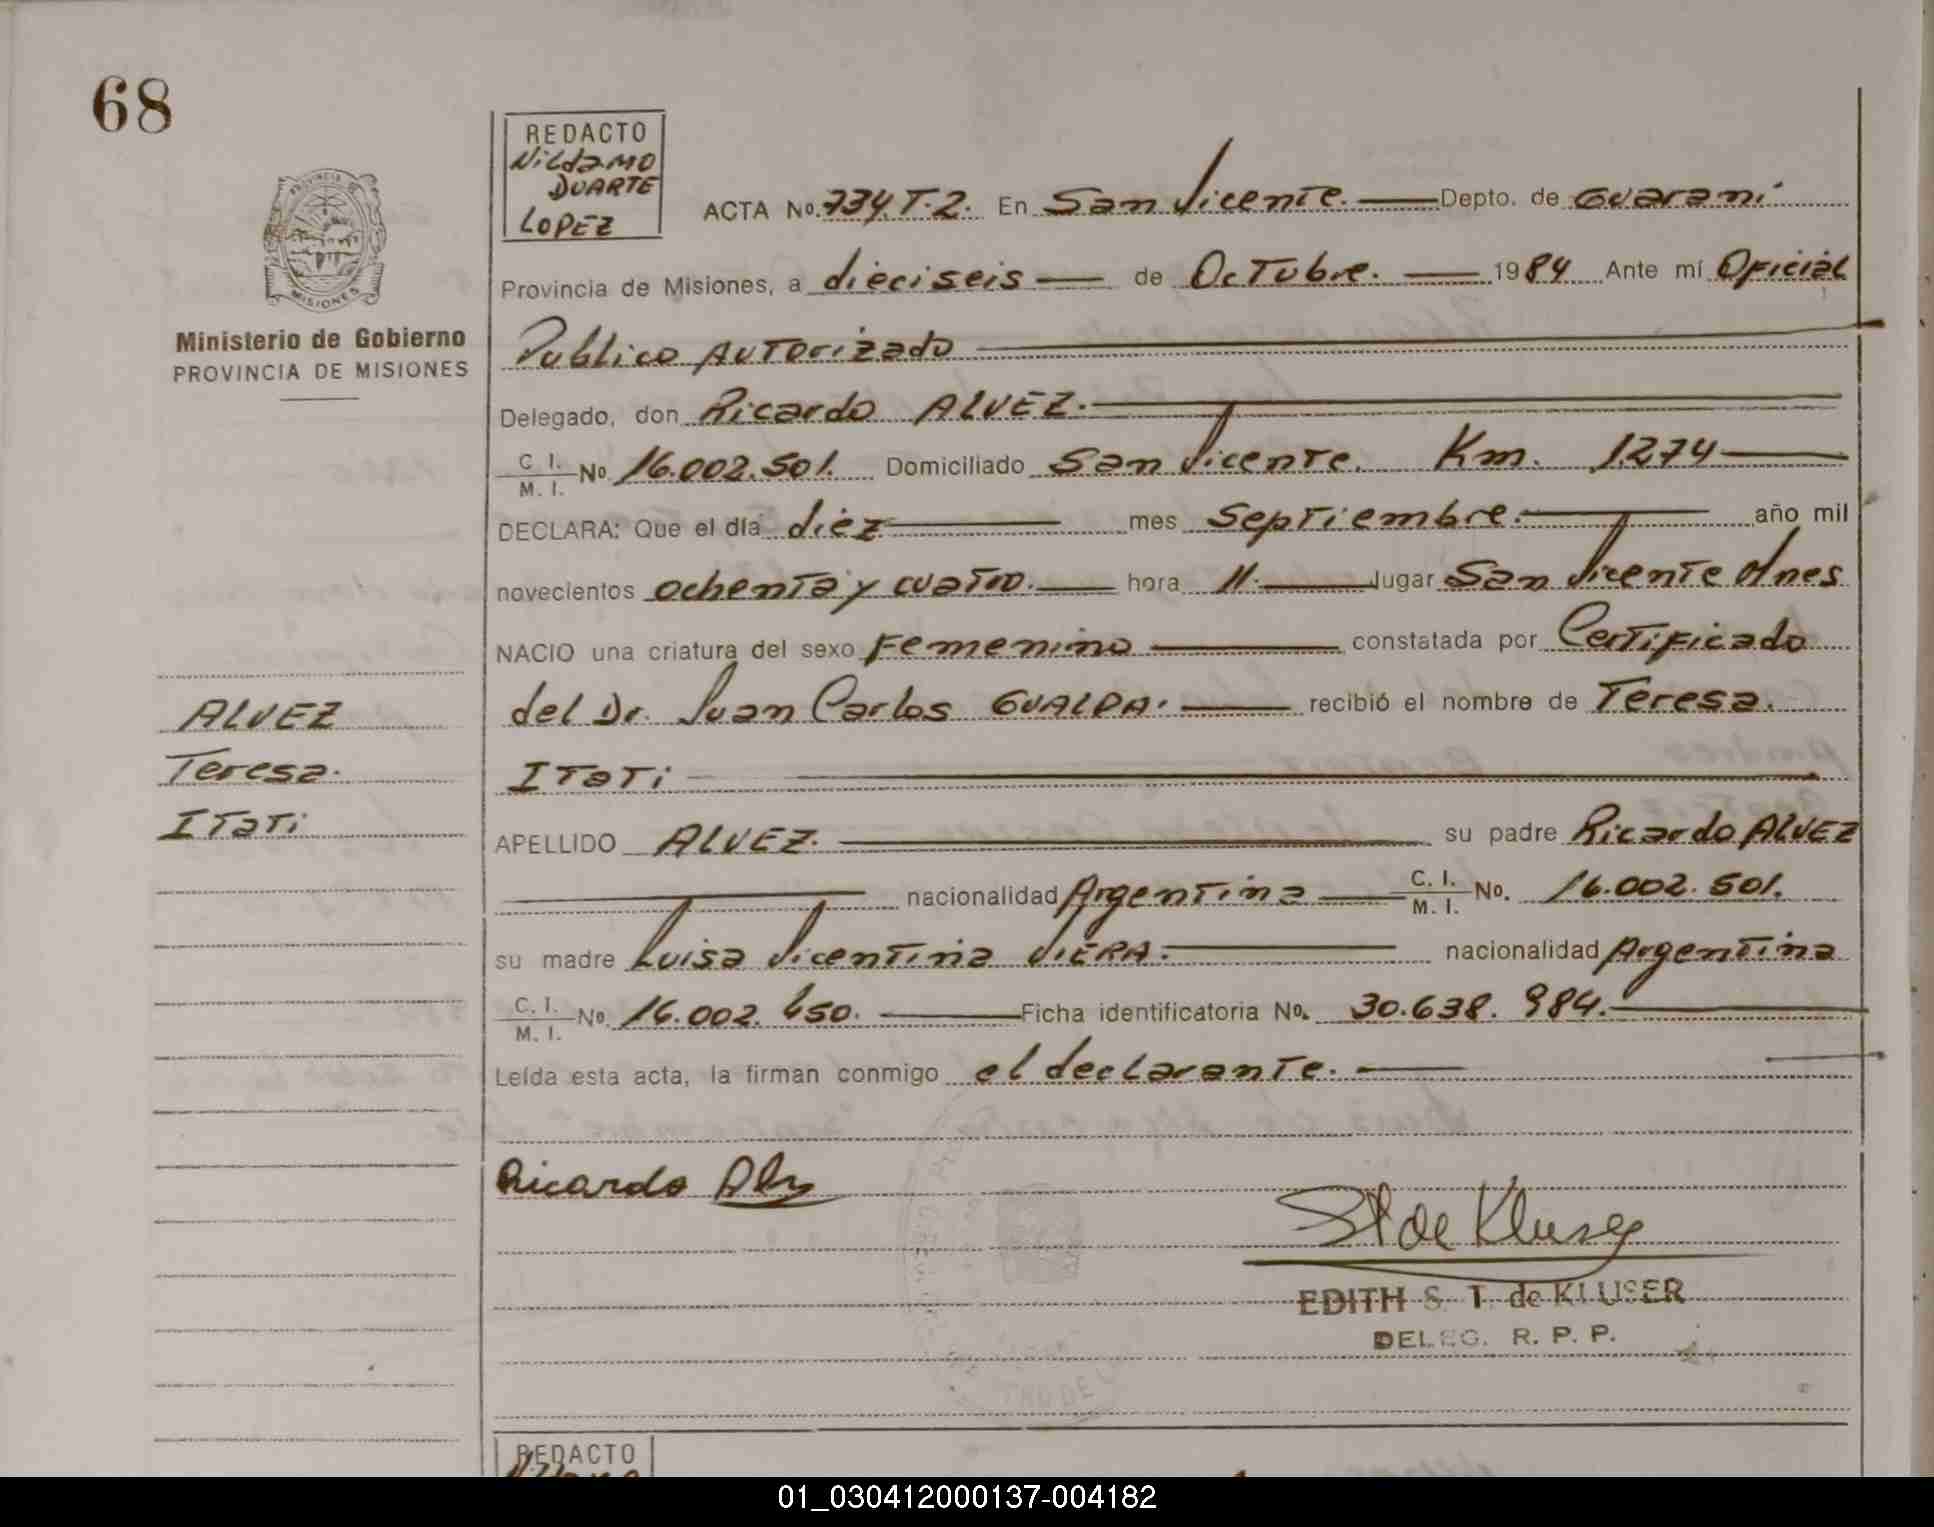 68
REDACTO
Nildamo
DUARTE
LOPEZ
PROVINCIA DE
MISIONES
Ministerio de Gobierno
PROVINCIA DE MISIONES
ACTA No. 734 T.2. En San Vicente. Depto. de Guaraní
Provincia de Misiones, a dieciseis de Octubre. 1984 Ante mí Oficial
Publico Autorizado
Delegado, don Ricardo ALVEZ.
C. I. / M. I. No 16.002.501. Domiciliado San Vicente. Km. 1274
DECLARA: Que el día diez mes Septiembre. año mil
novecientos ochenta y cuatro. hora 11. lugar San Vicente Mnes
NACIO una criatura del sexo Femenino constatada por Certificado
del Dr. Juan Carlos GUALPA. recibió el nombre de Teresa.
Itati
ALVEZ
Teresa.
Itati
APELLIDO ALVEZ. su padre Ricardo ALVEZ
nacionalidad Argentina C. I. / M. I. No. 16.002.501.
su madre Luisa Vicentina VIERA. nacionalidad Argentina
C. I. / M. I. No. 16.002.450. Ficha identificatoria No. 30.638.984.
Leída esta acta, la firman conmigo el declarante.
Ricardo Alv
St de Kluser
EDITH S. T. de KLUSER
DELEG. R. P. P.
REDACTO
01_030412000137-004182